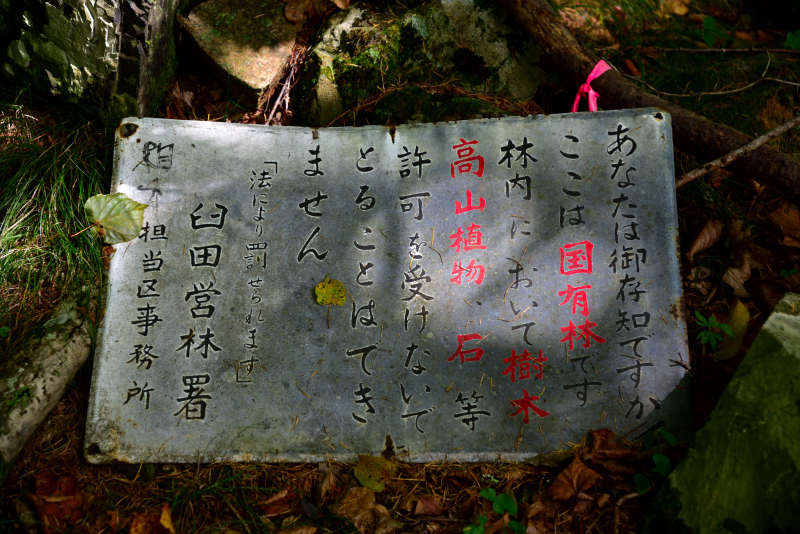 あなたは御存知ですか
ここは国有林です
林内において樹木
高山植物、石等
許可を受けないで
とることはでき
ません
「法により罰せられます」
臼田営林署
担当区事務所